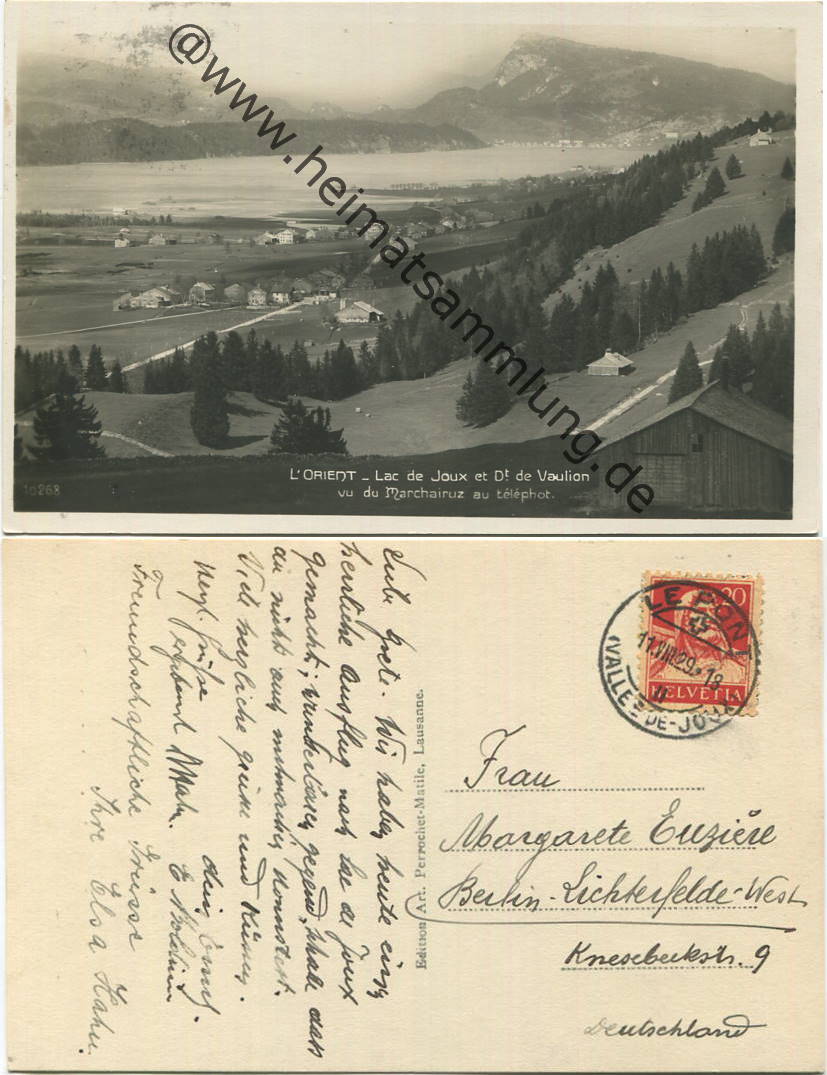 @www.heimatsammlung.de
L'ORIENT – Lac de Joux et Dt de Vaulion
vu du Marchairuz au téléphot.
10268
Liebe Grete. Wir haben heute einen
herrliche Ausflug nach Lac de Joux
gemacht; wunderbare Gegend, schade dass
du nicht auch mitmachen konntest.
Viele herzliche Grüsse und Küsse.
Dein
Herzl. Grüsse
Freundschaftliche Grüsse
Ihre Elsa Hahn.
Edition Art. Perrochet-Matile, Lausanne.
20
HELVETIA
LE PONT
11.VIII.29.-18
(VALLÉE-DE-JOUX)
Frau
Margarete Euzière
Berlin-Lichterfelde-West
Knesebeckstr. 9
Deutschland